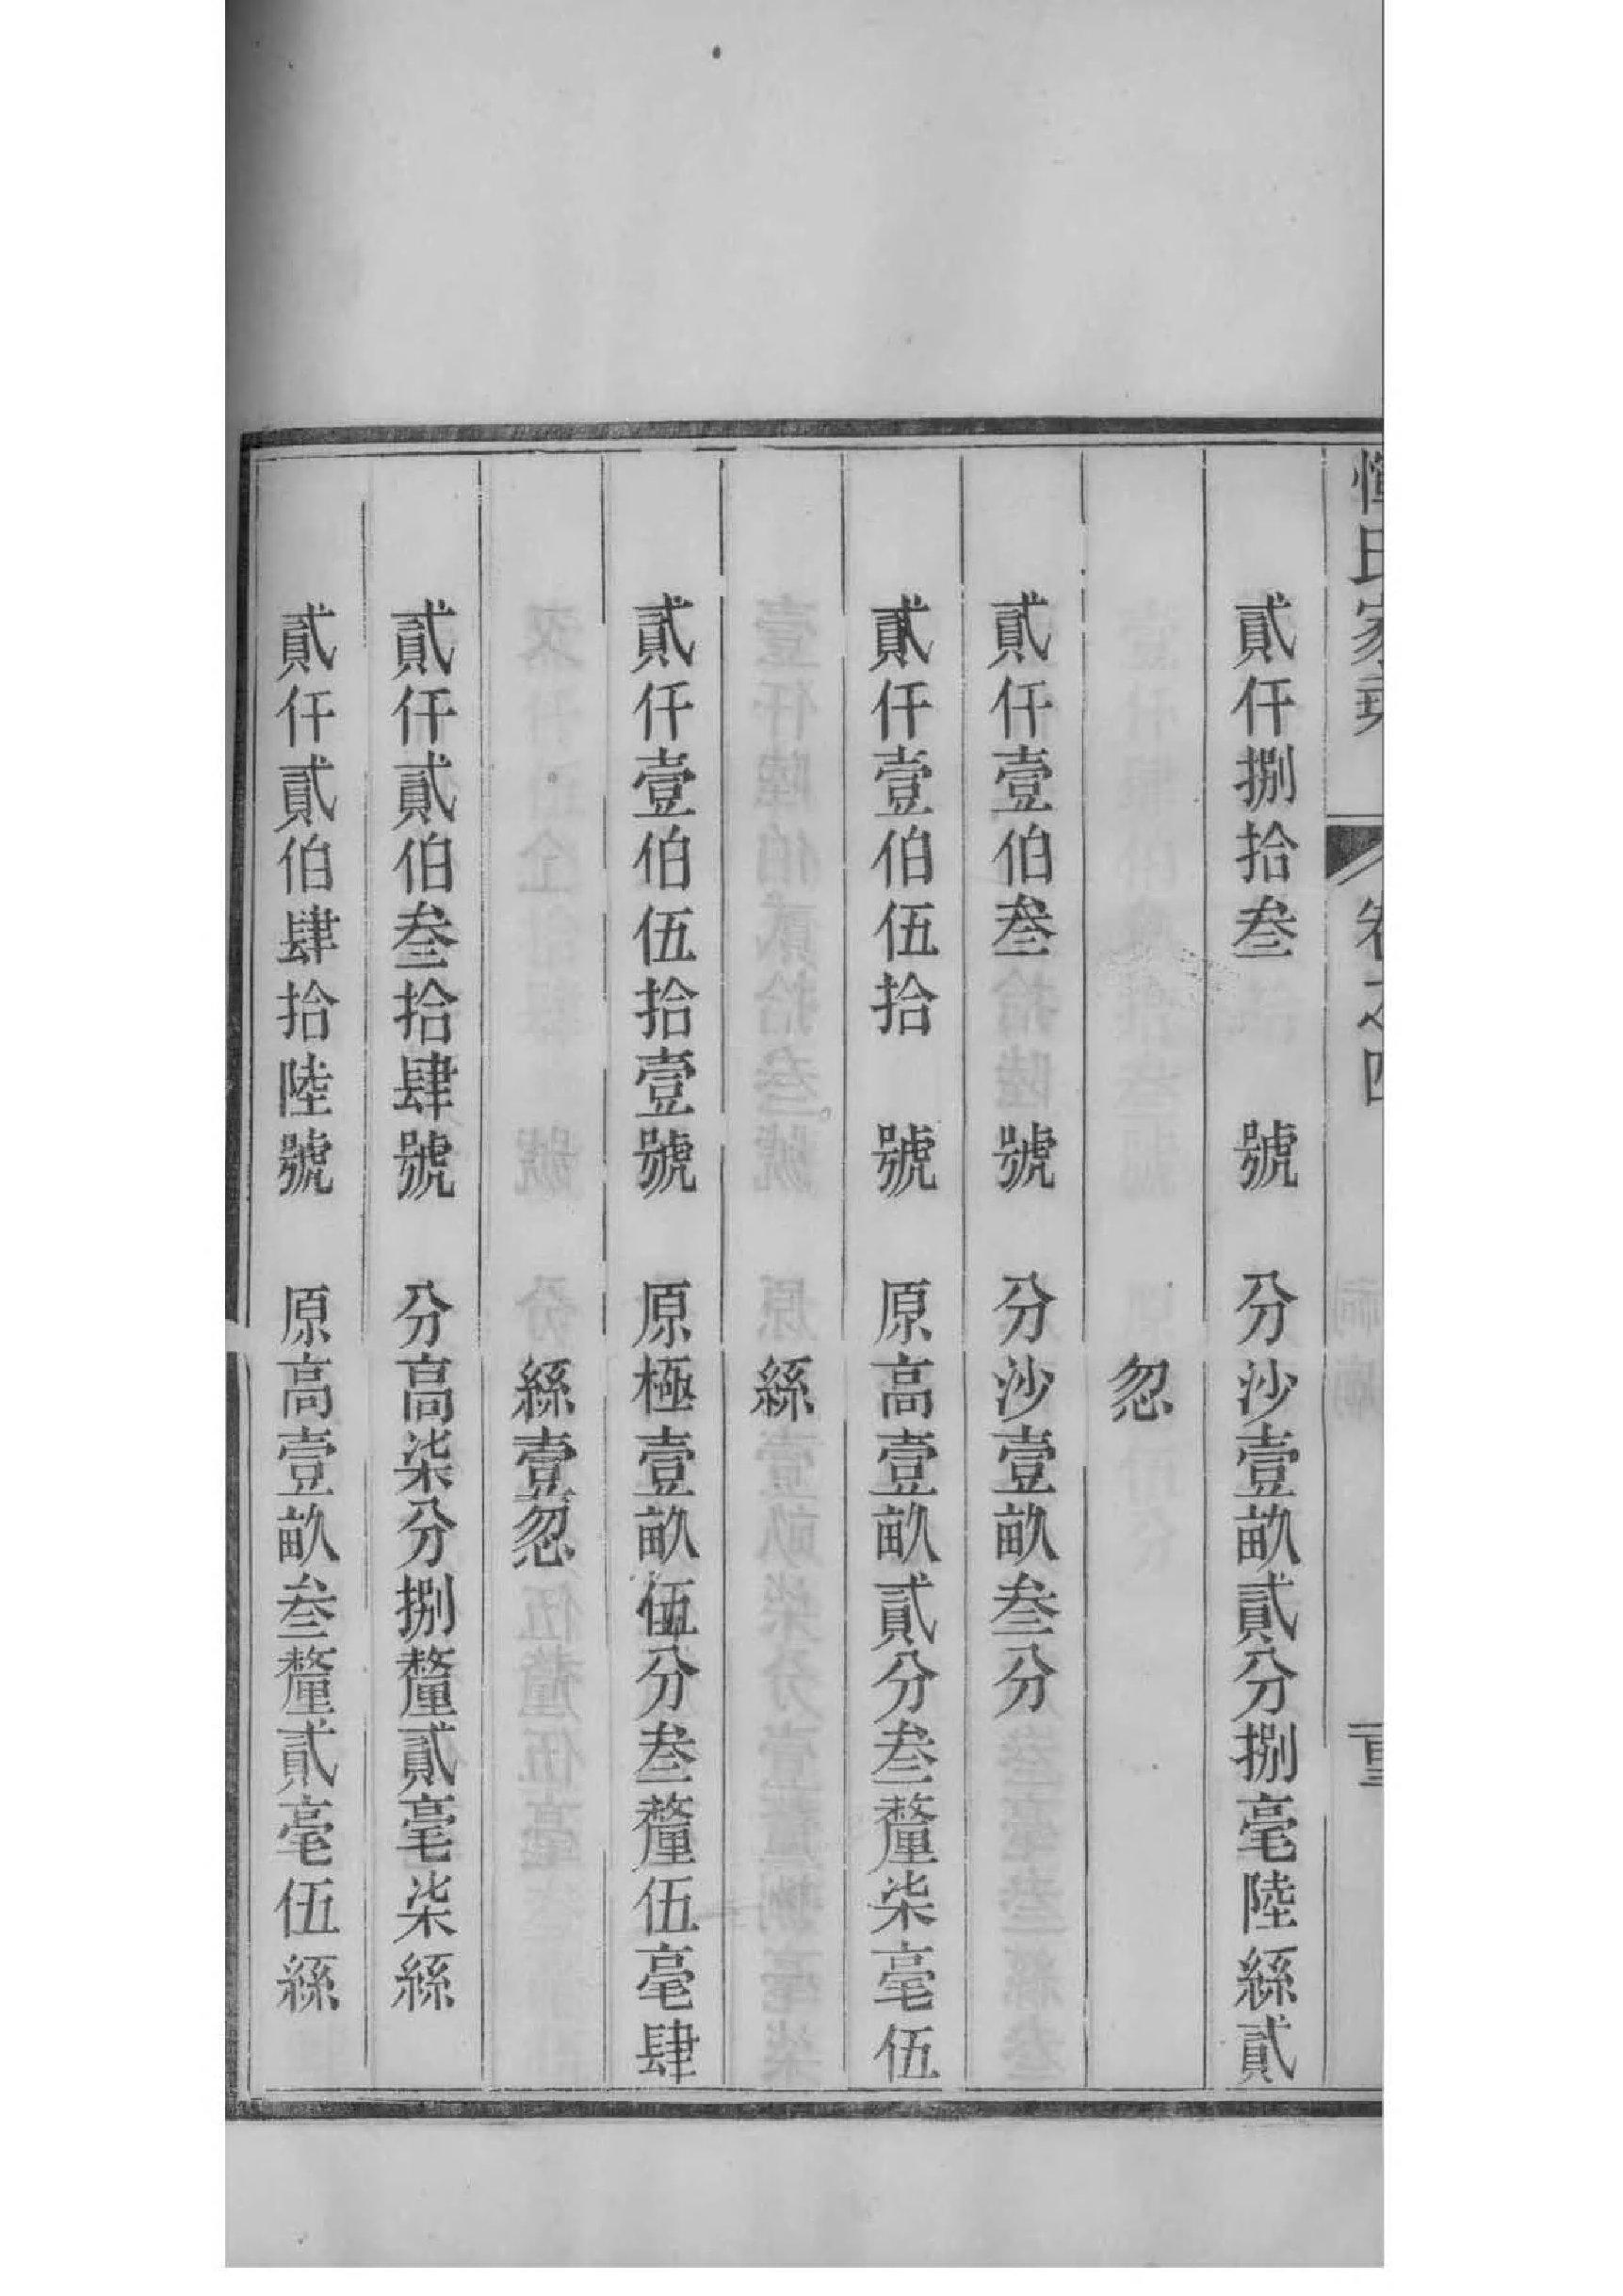 惲氏家乘 卷之四
貳仟捌拾叁 號 分沙壹畝貳分捌毫陸絲貳
忽
貳仟壹伯叁 號 分沙壹畝叁分
貳仟壹伯伍拾 號 原高壹畝貳分叁釐柒毫伍
絲
貳仟壹伯伍拾壹號 原極壹畝伍分叁釐伍毫肆
絲壹忽
貳仟貳伯叁拾肆號 分高柒分捌釐貳毫柒絲
貳仟貳伯肆拾陸號 原高壹畝叁釐貳毫伍絲